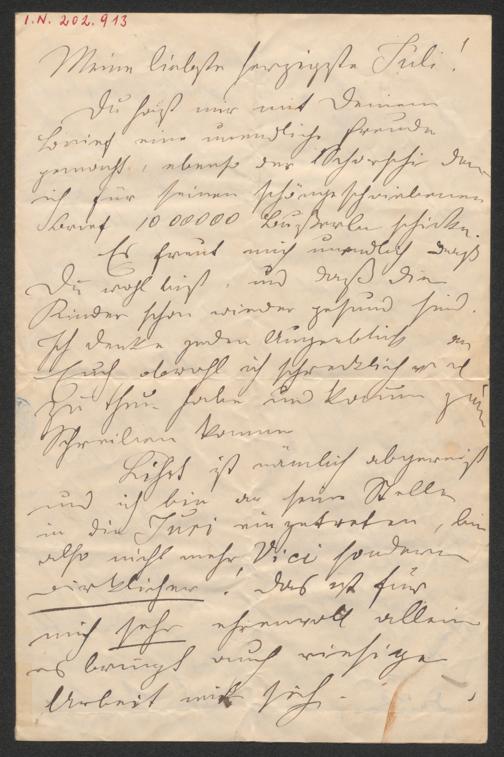 I.N. 202.913
Meine liebste herzigste Juli!
Du hast mir mit Deinem
Brief eine unendliche Freude
gemacht, ebenso der Schorschi dem
ich für seinen schöngeschriebenen
Brief 1000000 Bußerln schicke.
Es freut mich unendlich daß
Du wohl bist, und daß die
Kinder schon wieder gesund sind.
Ich denke jeden Augenblick an
Euch obwohl ich schrecklich viel
zu thun habe und kaum zum
Schreiben komme
ist nämlich abgereist
und ich bin an seine Stelle
in die Juri eingetreten, bin
also nicht mehr Vici sondern
wirklicher! Das ist für
mich sehr ehrenvoll allein
es bringt auch riesige
Arbeit mit sich.